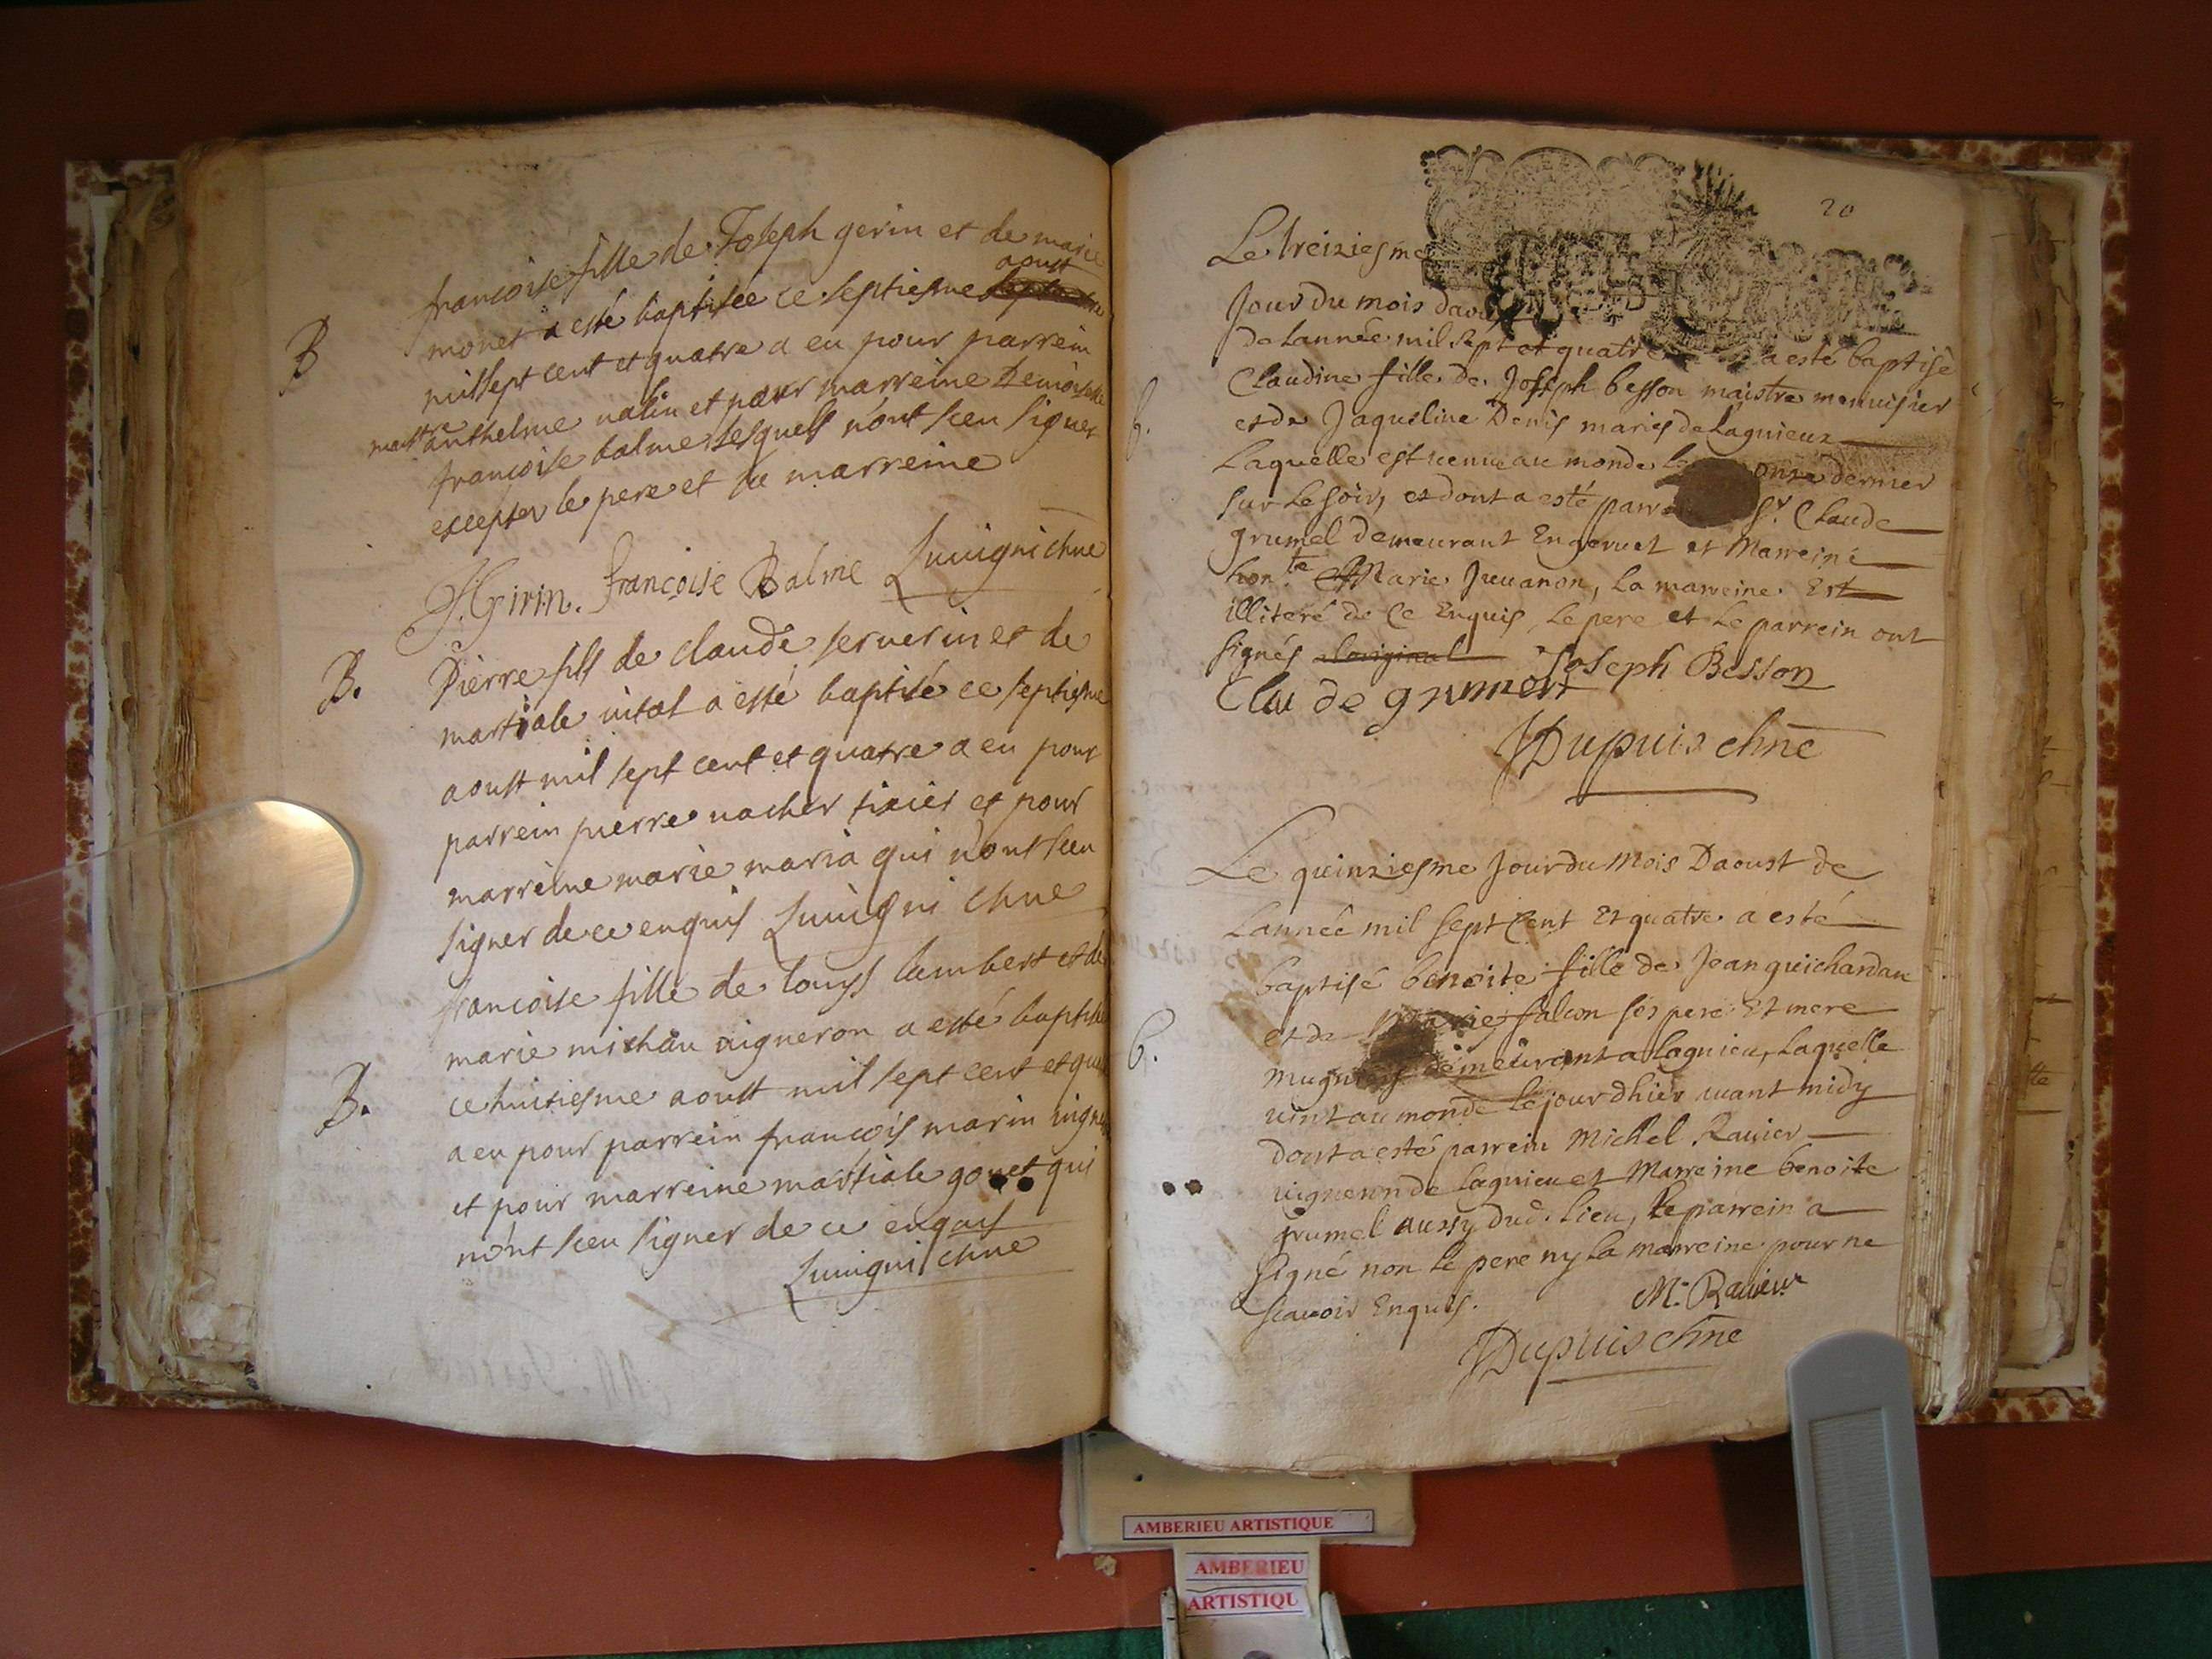 B
francoise fille de Joseph gerin et de marie
aoust
monet a esté baptisée ce septiesme
mil sept cent et quatre a eu pour parrein
maitre anthelme valin et pour marreine Demoiselle
francoise balme lesquels n'ont sceu signer
excepter le pere et la marreine
J. Girin. francoise Balme Luuigni chne
B.
Pierre fils de claude seruerin et de
martiale vital a esté baptisé ce septiesme
aoust mil sept cent et quatre a eu pour
parrein pierre vacher tixier et pour
marreine marie maria qui n'ont sceu
signer de ce enquis Luuigni chne
francoise fille de louys lambert et de
marie michau vigneron a esté baptisée
B.
ce huitiesme aoust mil sept cent et qua
a eu pour parrein francois marin vigne
et pour marreine martiale gouet qui
n'ont sceu signer de ce enquis
Luuigni chne
20
Le treiziesme
Jour du mois daoust
de Lannée mil sept et quatre a esté baptisé
Claudine fille de Joseph besson maistre menuisier
b.
et de Jaqueline Denis mariés de Lagnieux
Laquelle est venue au monde onze dernier
sur Le soir, et dont a esté parr Sr. Claude
grumel demeurant En geruet et Marreine
hon.te Marie Juuanon, La marreine Est
illiteré de Ce Enquis, Le pere et Le parrein ont
signés Loriginal Joseph Besson
Clau de grumert
JDupuis chne
Le quinziesme Jour du Mois Daoust de
Lannée mil sept Cent Et quatre a esté
baptisé benoite fille de Jean guichardan
et de Marie falcon ses pere Et mere
b.
demeurant a Lagnieu, Laquelle
vint au monde le jour dhier auant midy
dont a esté parrein Michel Rauier
vigneron de Lagnieu et Marreine benoite
grumel aussy dud. lieu, Le parrein a
signé non le pere ny La marreine pour ne
scauoir Enquis. M. Rauieur
JDupuis chne
AMBERIEU ARTISTIQUE
AMBERIEU
ARTISTIQU